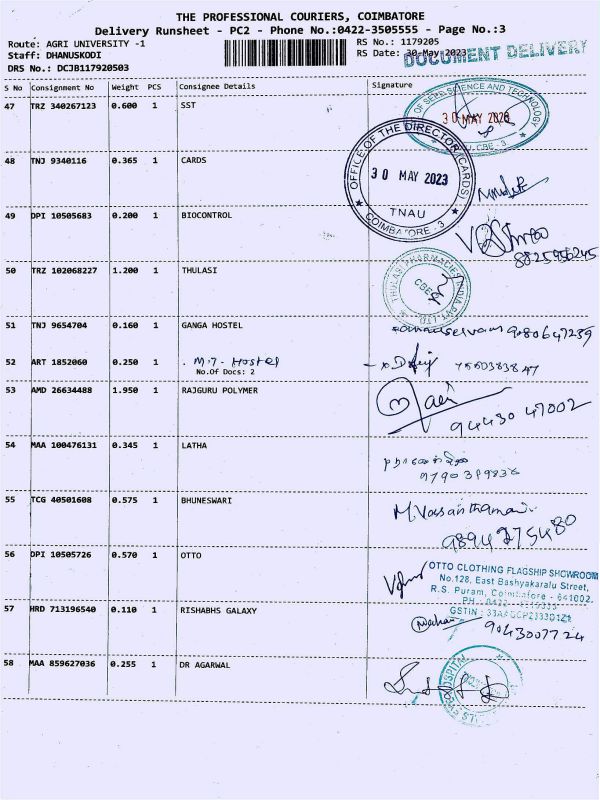 THE PROFESSIONAL COURIERS, COIMBATORE
Delivery Runsheet - PC2 - Phone No.:0422-3505555 - Page No.:3
Route: AGRI UNIVERSITY -1
Staff: DHANUSKODI
DRS No.: DCJB117920503
RS No.: 1179205
RS Date: 30-May-2023
DOCUMENT DELIVERY
S No Consignment No Weight PCS Consignee Details Signature
47 TRZ 340267123 0.600 1 SST
OF SEED SCIENCE AND TECHNOLOGY
30 MAY 2023
48 TNJ 9340116 0.365 1 CARDS
OFFICE OF THE DIRECTOR (CARDS)
30 MAY 2023
TNAU
COIMBATORE - 3
49 DPI 10505683 0.200 1 BIOCONTROL
8825956245
50 TRZ 102068227 1.200 1 THULASI
THULASI PHARMACIES INDIA PVT LTD
CBE
51 TNJ 9654704 0.160 1 GANGA HOSTEL
9080647239
52 ART 1852060 0.250 1 M.7- Hostel
No.Of Docs: 2
53 AMD 26634488 1.950 1 RAJGURU POLYMER
94430 47002
54 MAA 100476131 0.345 1 LATHA
55 TCG 40501608 0.575 1 BHUNESWARI
M.Vasanthamani
9894275480
56 DPI 10505726 0.570 1 OTTO
OTTO CLOTHING FLAGSHIP SHOWROOM
No.128, East Bashyakaralu Street,
R.S. Puram, Coimbatore - 641002.
GSTIN :
57 HRD 713196540 0.110 1 RISHABHS GALAXY
9043007724
58 MAA 859627036 0.255 1 DR AGARWAL